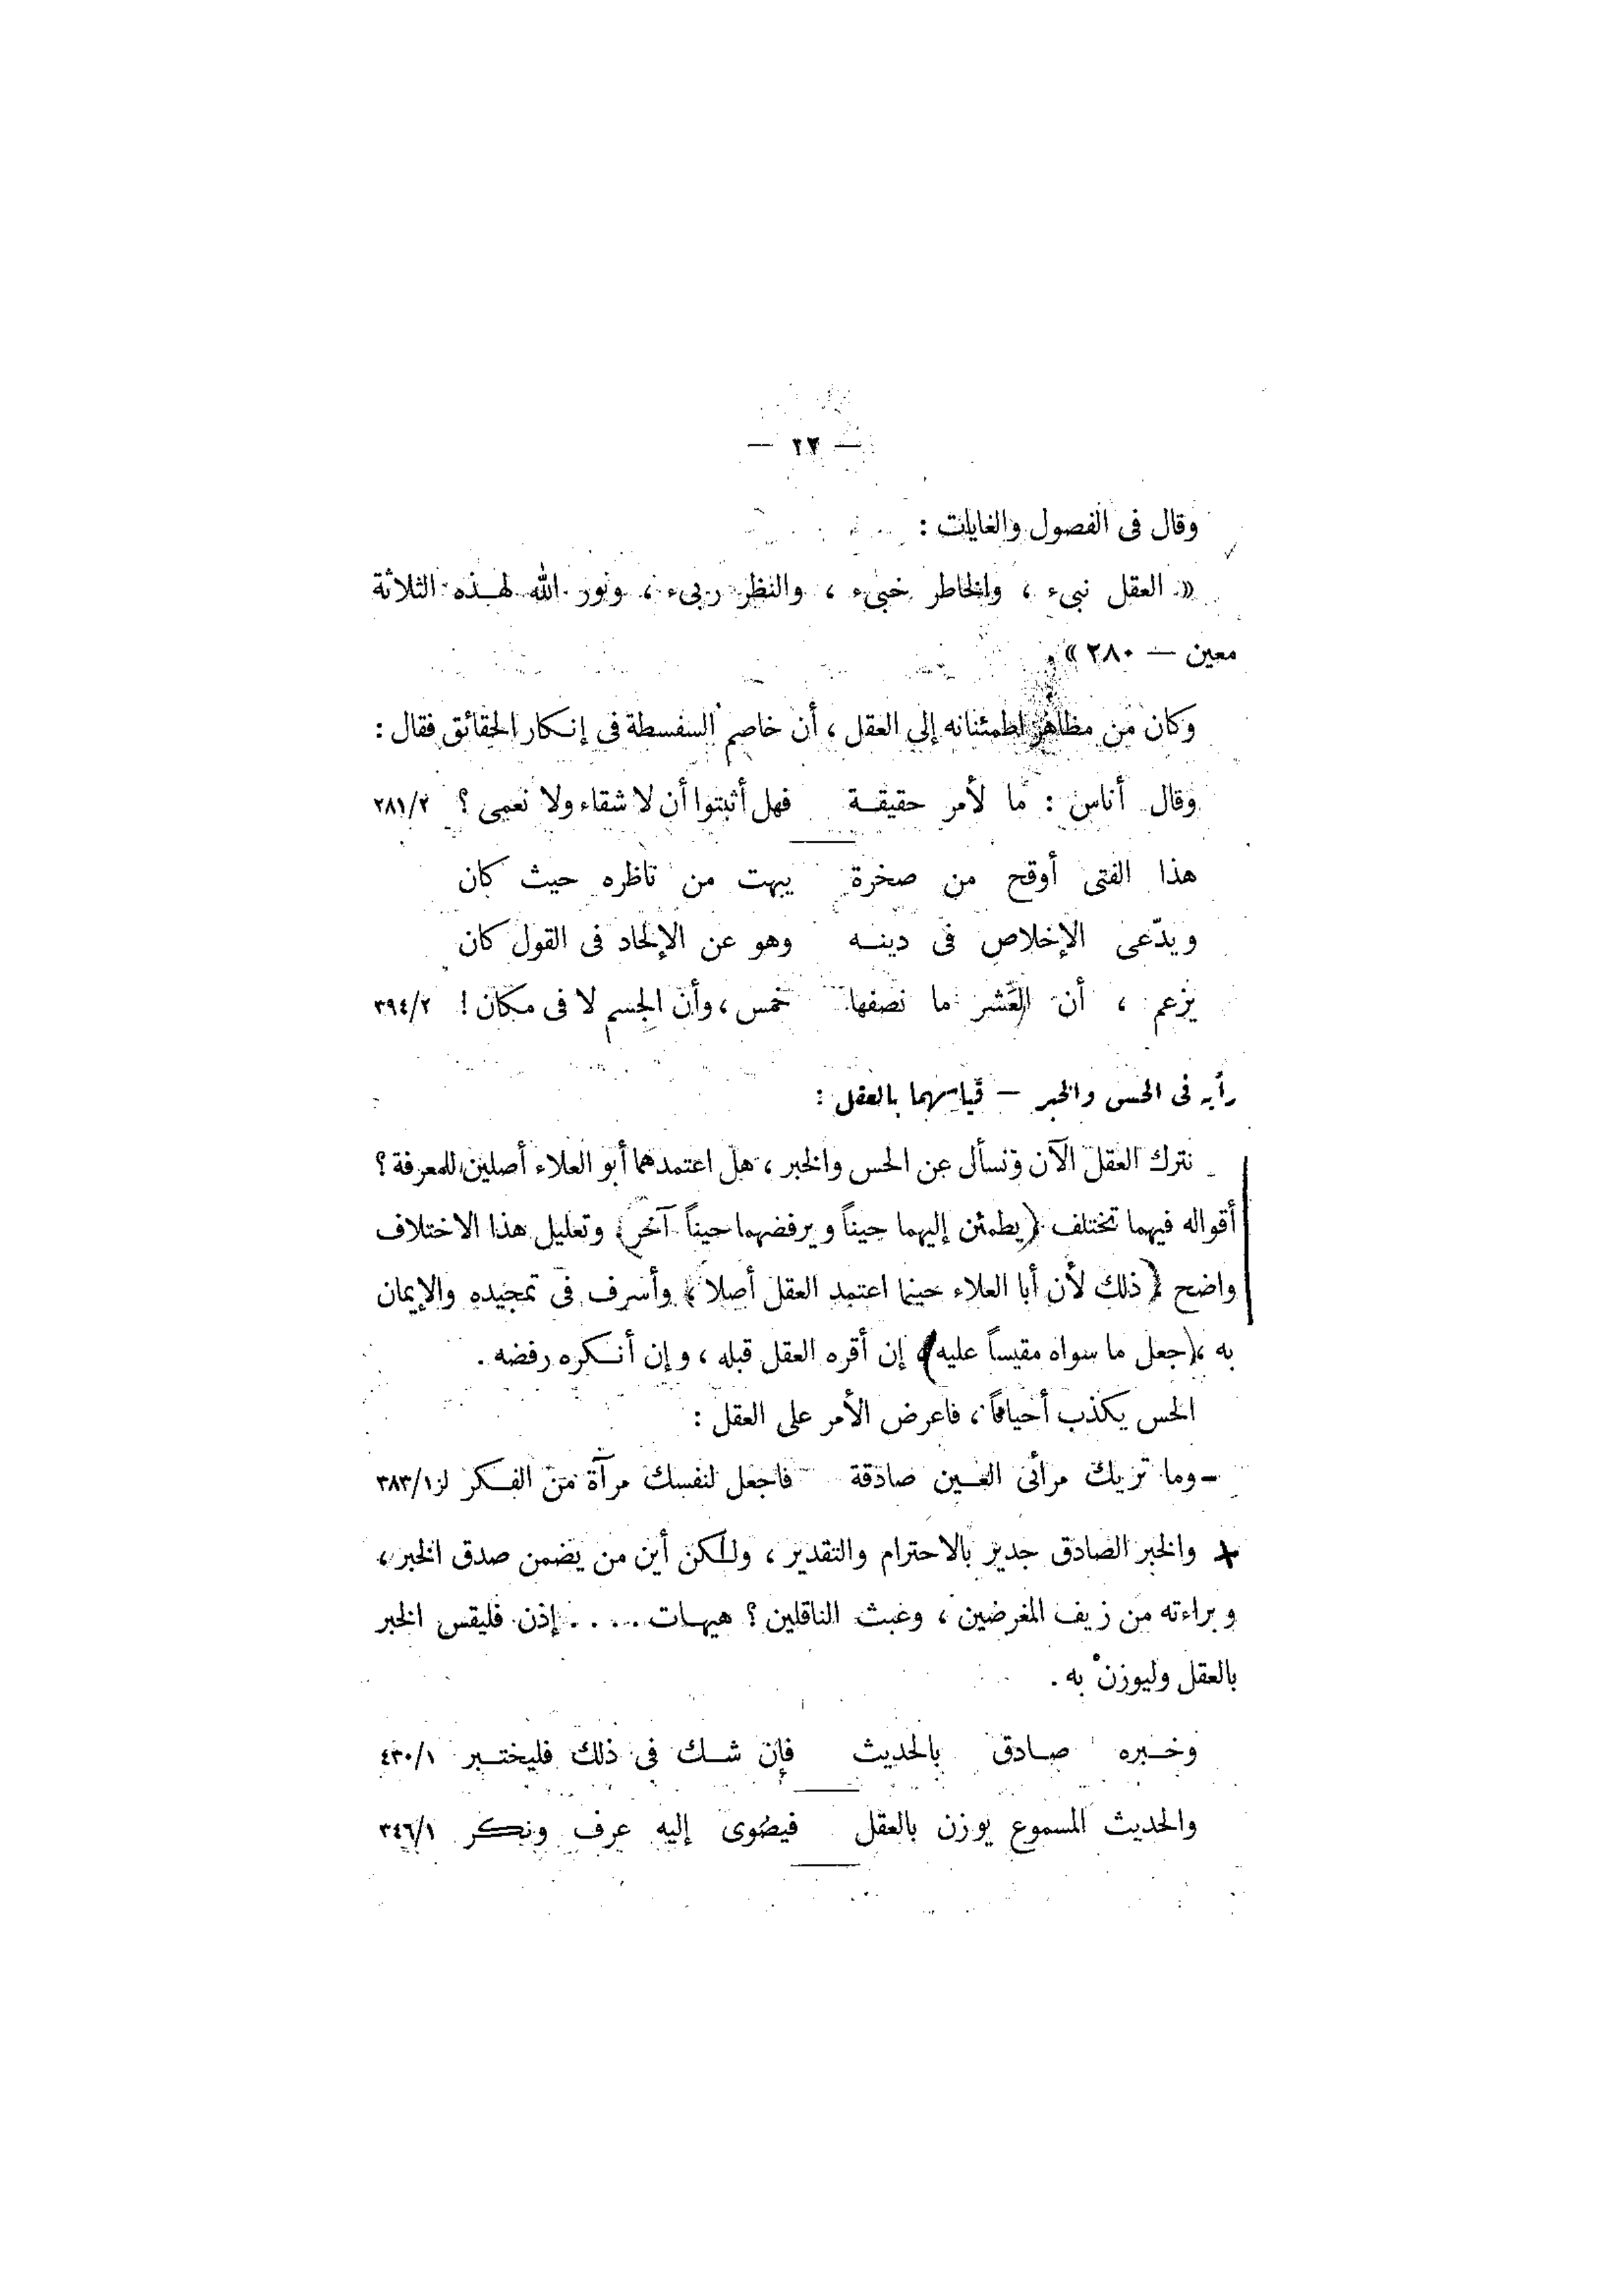 — ٢٢ —
وقال فى الفصول والغايات :
« العقل نبىء ، والخاطر خبىء ، والنظر ربىء ، ونور الله لهذه الثلاثة
معين — ٢٨٠ » .
وكان من مظاهر اطمئنانه إلى العقل ، أن خاصم السفسطة فى إنكار الحقائق فقال :
وقال أناس : ما لأمر حقيقة فهل أثبتوا أن لا شقاء ولا نعمى ؟ ٢٨١/٢
هذا الفتى أوقح من صخرة يبهت من ناظره حيث كان
ويدّعى الإخلاص فى دينه وهو عن الإلحاد فى القول كان
يزعم ، أن العَشر ما نصفها خمس ، وأن الجسم لا فى مكان ! ٣٩٤/٢
رأيه فى الحس والخبر — قياسهما بالعقل :
نترك العقل الآن ونسأل عن الحس والخبر ، هل اعتمدهما أبو العلاء أصلين للمعرفة ؟
أقواله فيهما تختلف (يطمئن إليهما حيناً ويرفضهما حيناً آخر) وتعليل هذا الاختلاف
واضح (ذلك لأن أبا العلاء حينما اعتمد العقل أصلا ، وأسرف فى تمجيده والإيمان
به ،(جعل ما سواه مقيساً عليه) إن أقره العقل قبله ، وإن أنكره رفضه .
الحس يكذب أحياناً ، فاعرض الأمر على العقل :
– وما تريك مرائى العين صادقة فاجعل لنفسك مرآة من الفكر لز١/٣٨٣
والخبر الصادق جدير بالاحترام والتقدير ، ولكن أين من يضمن صدق الخبر ،
وبراءته من زيف المغرضين ، وعبث الناقلين ؟ هيهات .... إذن فليقس الخبر
بالعقل وليوزنْ به .
وخبره صادق بالحديث فإن شك فى ذلك فليختبر ٤٣٠/١
والحديث المسموع يوزن بالعقل فيضوى إليه عرف ونكر ٣٤٦/١